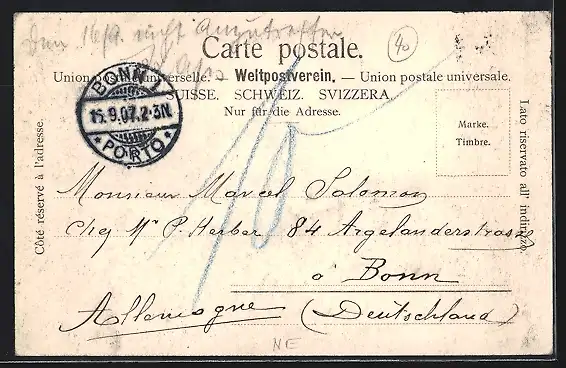 Den 16/9. nicht Anzutreffen
40
Carte postale.
Union postale universelle. — Weltpostverein. — Union postale universale.
SUISSE. SCHWEIZ. SVIZZERA.
Nur für die Adresse.
BONN 1
15.9.07.2-3N
* PORTO *
Marke.
Timbre.
Côté réservé à l'adresse.
Lato riservato all' indirizzo.
10
Monsieur Marcel Salomon
Chez Mr P. Herber 84 Argelanderstrasse
à Bonn
Allemagne (Deutschland)
NE